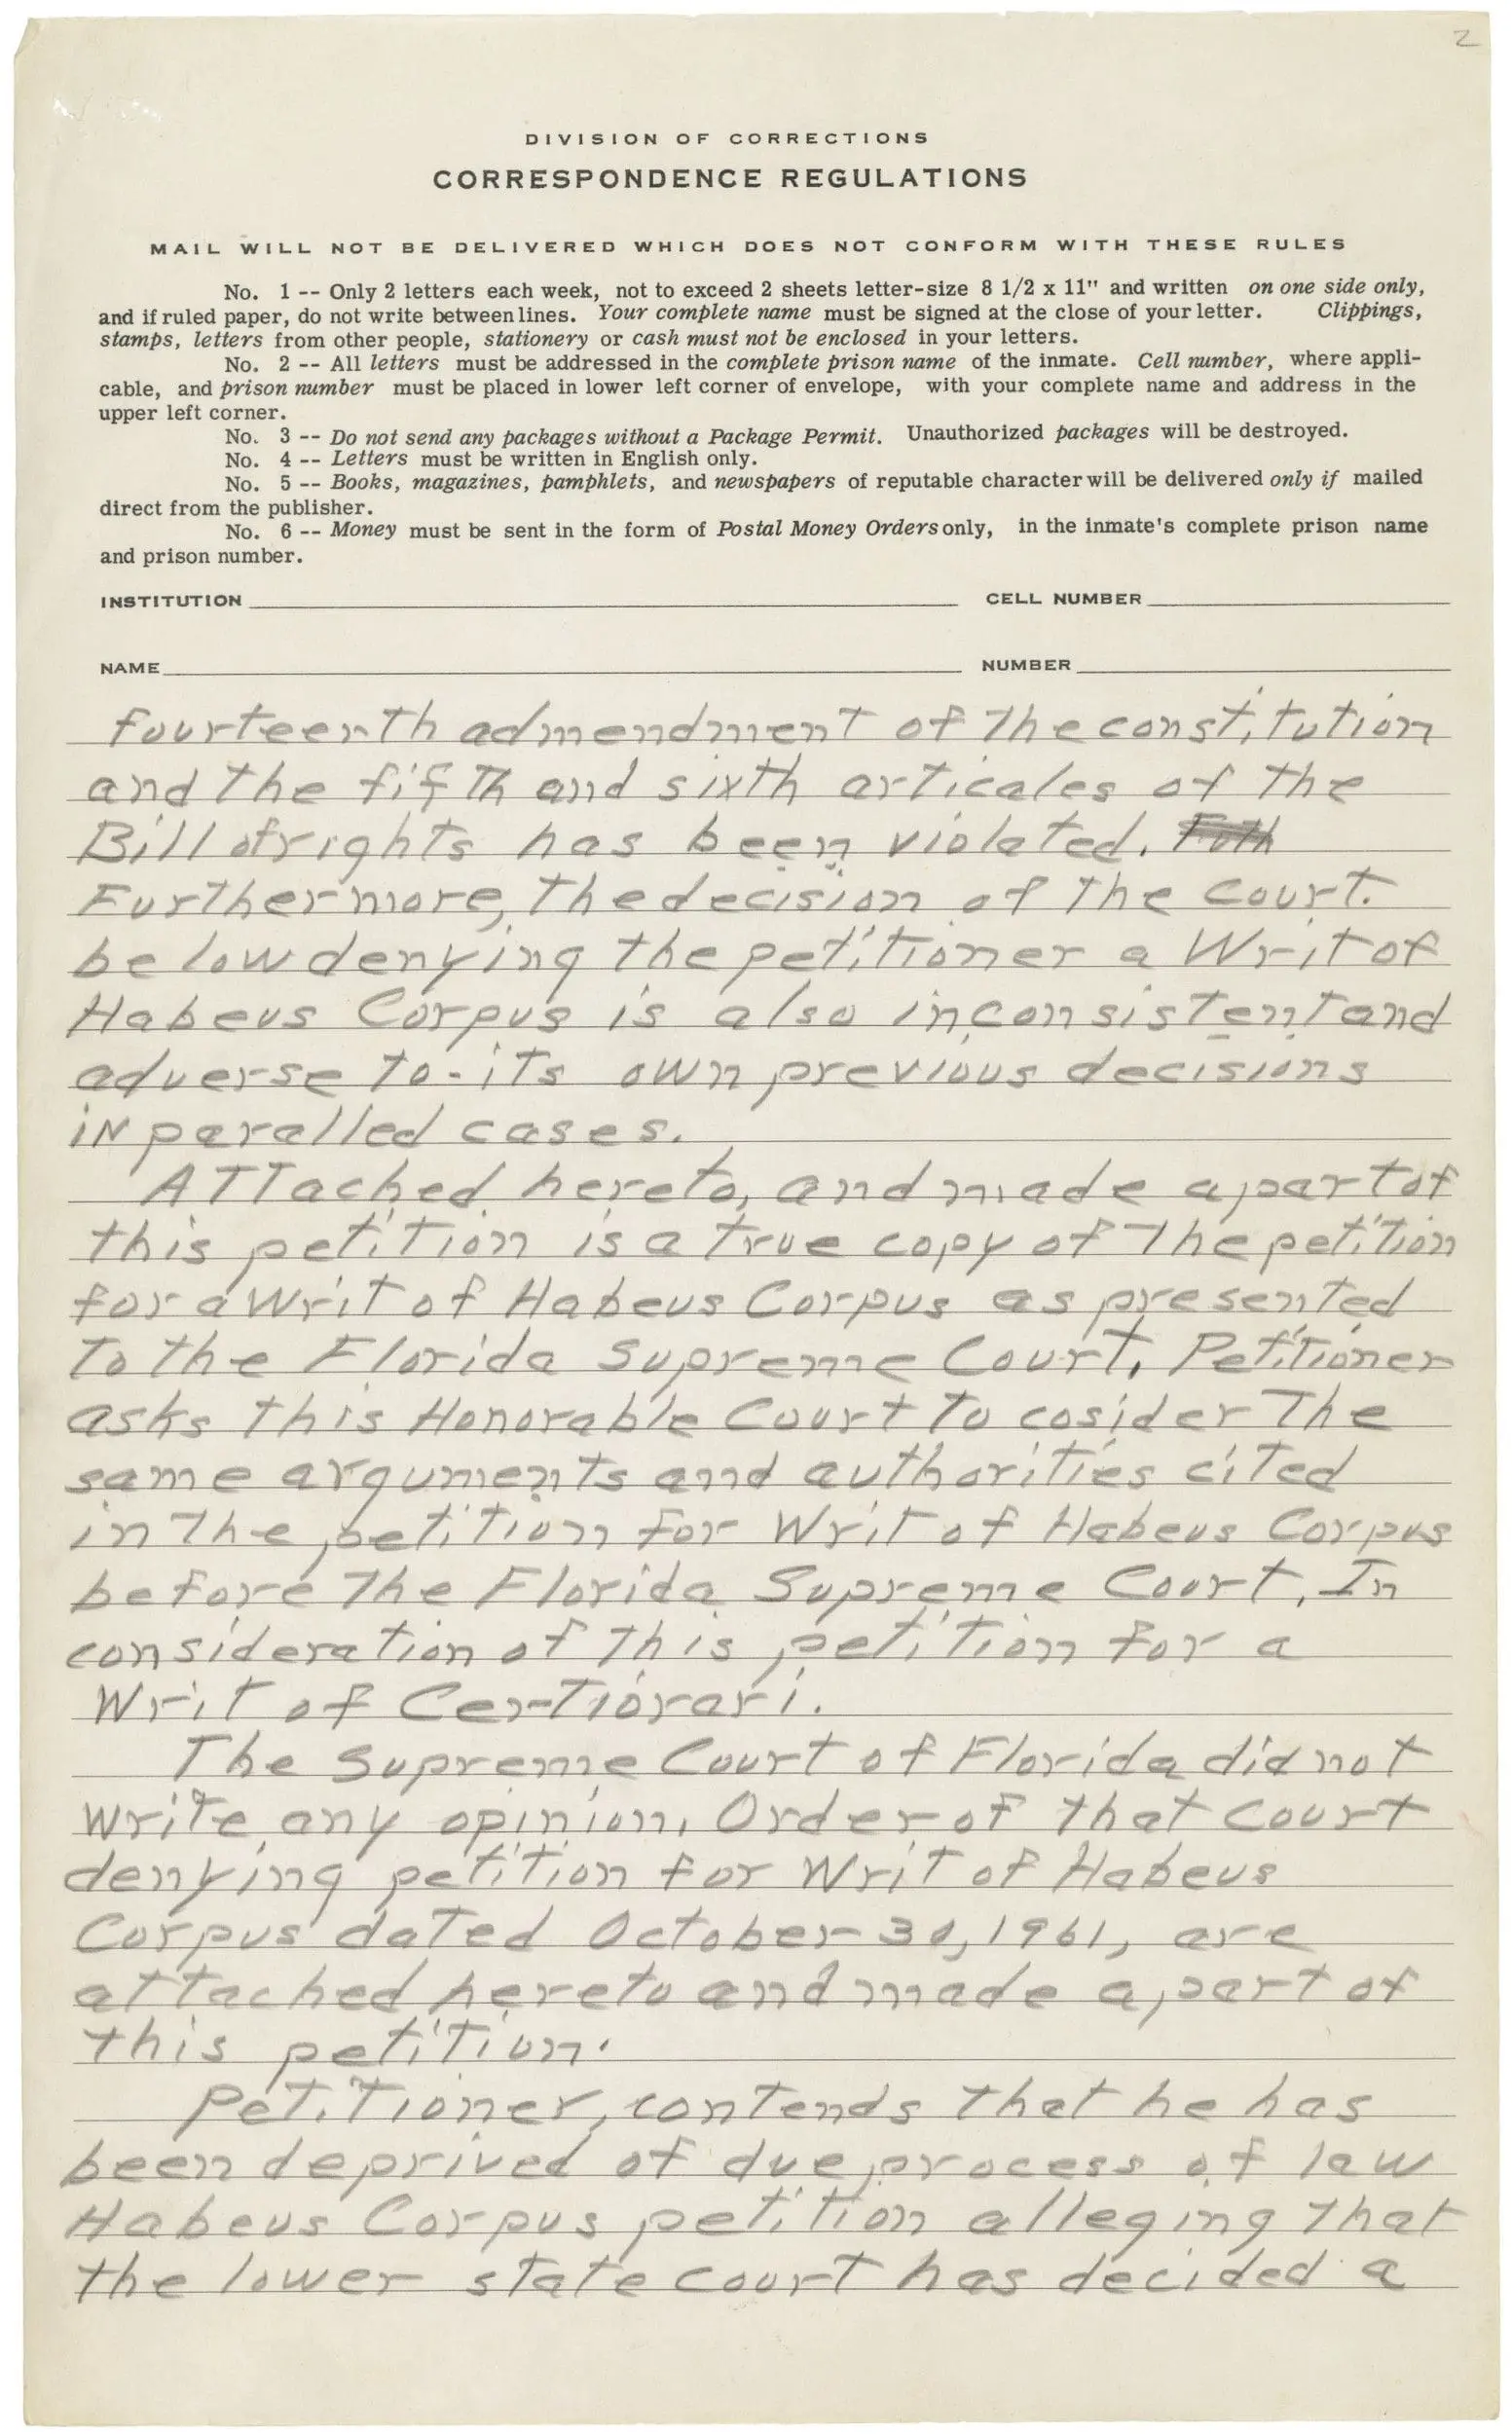 2
DIVISION OF CORRECTIONS
CORRESPONDENCE REGULATIONS
MAIL WILL NOT BE DELIVERED WHICH DOES NOT CONFORM WITH THESE RULES
No. 1 -- Only 2 letters each week, not to exceed 2 sheets letter-size 8 1/2 x 11" and written on one side only,
and if ruled paper, do not write between lines. Your complete name must be signed at the close of your letter. Clippings,
stamps, letters from other people, stationery or cash must not be enclosed in your letters.
No. 2 -- All letters must be addressed in the complete prison name of the inmate. Cell number, where appli-
cable, and prison number must be placed in lower left corner of envelope, with your complete name and address in the
upper left corner.
No. 3 -- Do not send any packages without a Package Permit. Unauthorized packages will be destroyed.
No. 4 -- Letters must be written in English only.
No. 5 -- Books, magazines, pamphlets, and newspapers of reputable character will be delivered only if mailed
direct from the publisher.
No. 6 -- Money must be sent in the form of Postal Money Orders only, in the inmate's complete prison name
and prison number.
INSTITUTION CELL NUMBER
NAME NUMBER
fourteenth admendment of the constitution
and the fifth and sixth articales of the
Bill of rights has been violated.
Furthermore, the decision of the court.
below denying the petitioner a Writ of
Habeus Corpus is also inconsistent and
adverse to-its own previous decisions
in paralled cases.
Attached hereto, and made a part of
this petition is a true copy of the petition
for a Writ of Habeus Corpus as presented
to the Florida Supreme Court. Petitioner
asks this Honorable Court to cosider the
same arguments and authorities cited
in the petition for Writ of Habeus Corpus
before the Florida Supreme Court, In
consideration of this petition for a
Writ of Certiorari.
The Supreme Court of Florida did not
write any opinion, Order of that Court
denying petition for Writ of Habeus
Corpus dated October 30, 1961, are
attached hereto and made a part of
this petition.
Petitioner, contends that he has
been deprived of due process of law
Habeus Corpus petition alleging that
the lower state court has decided a